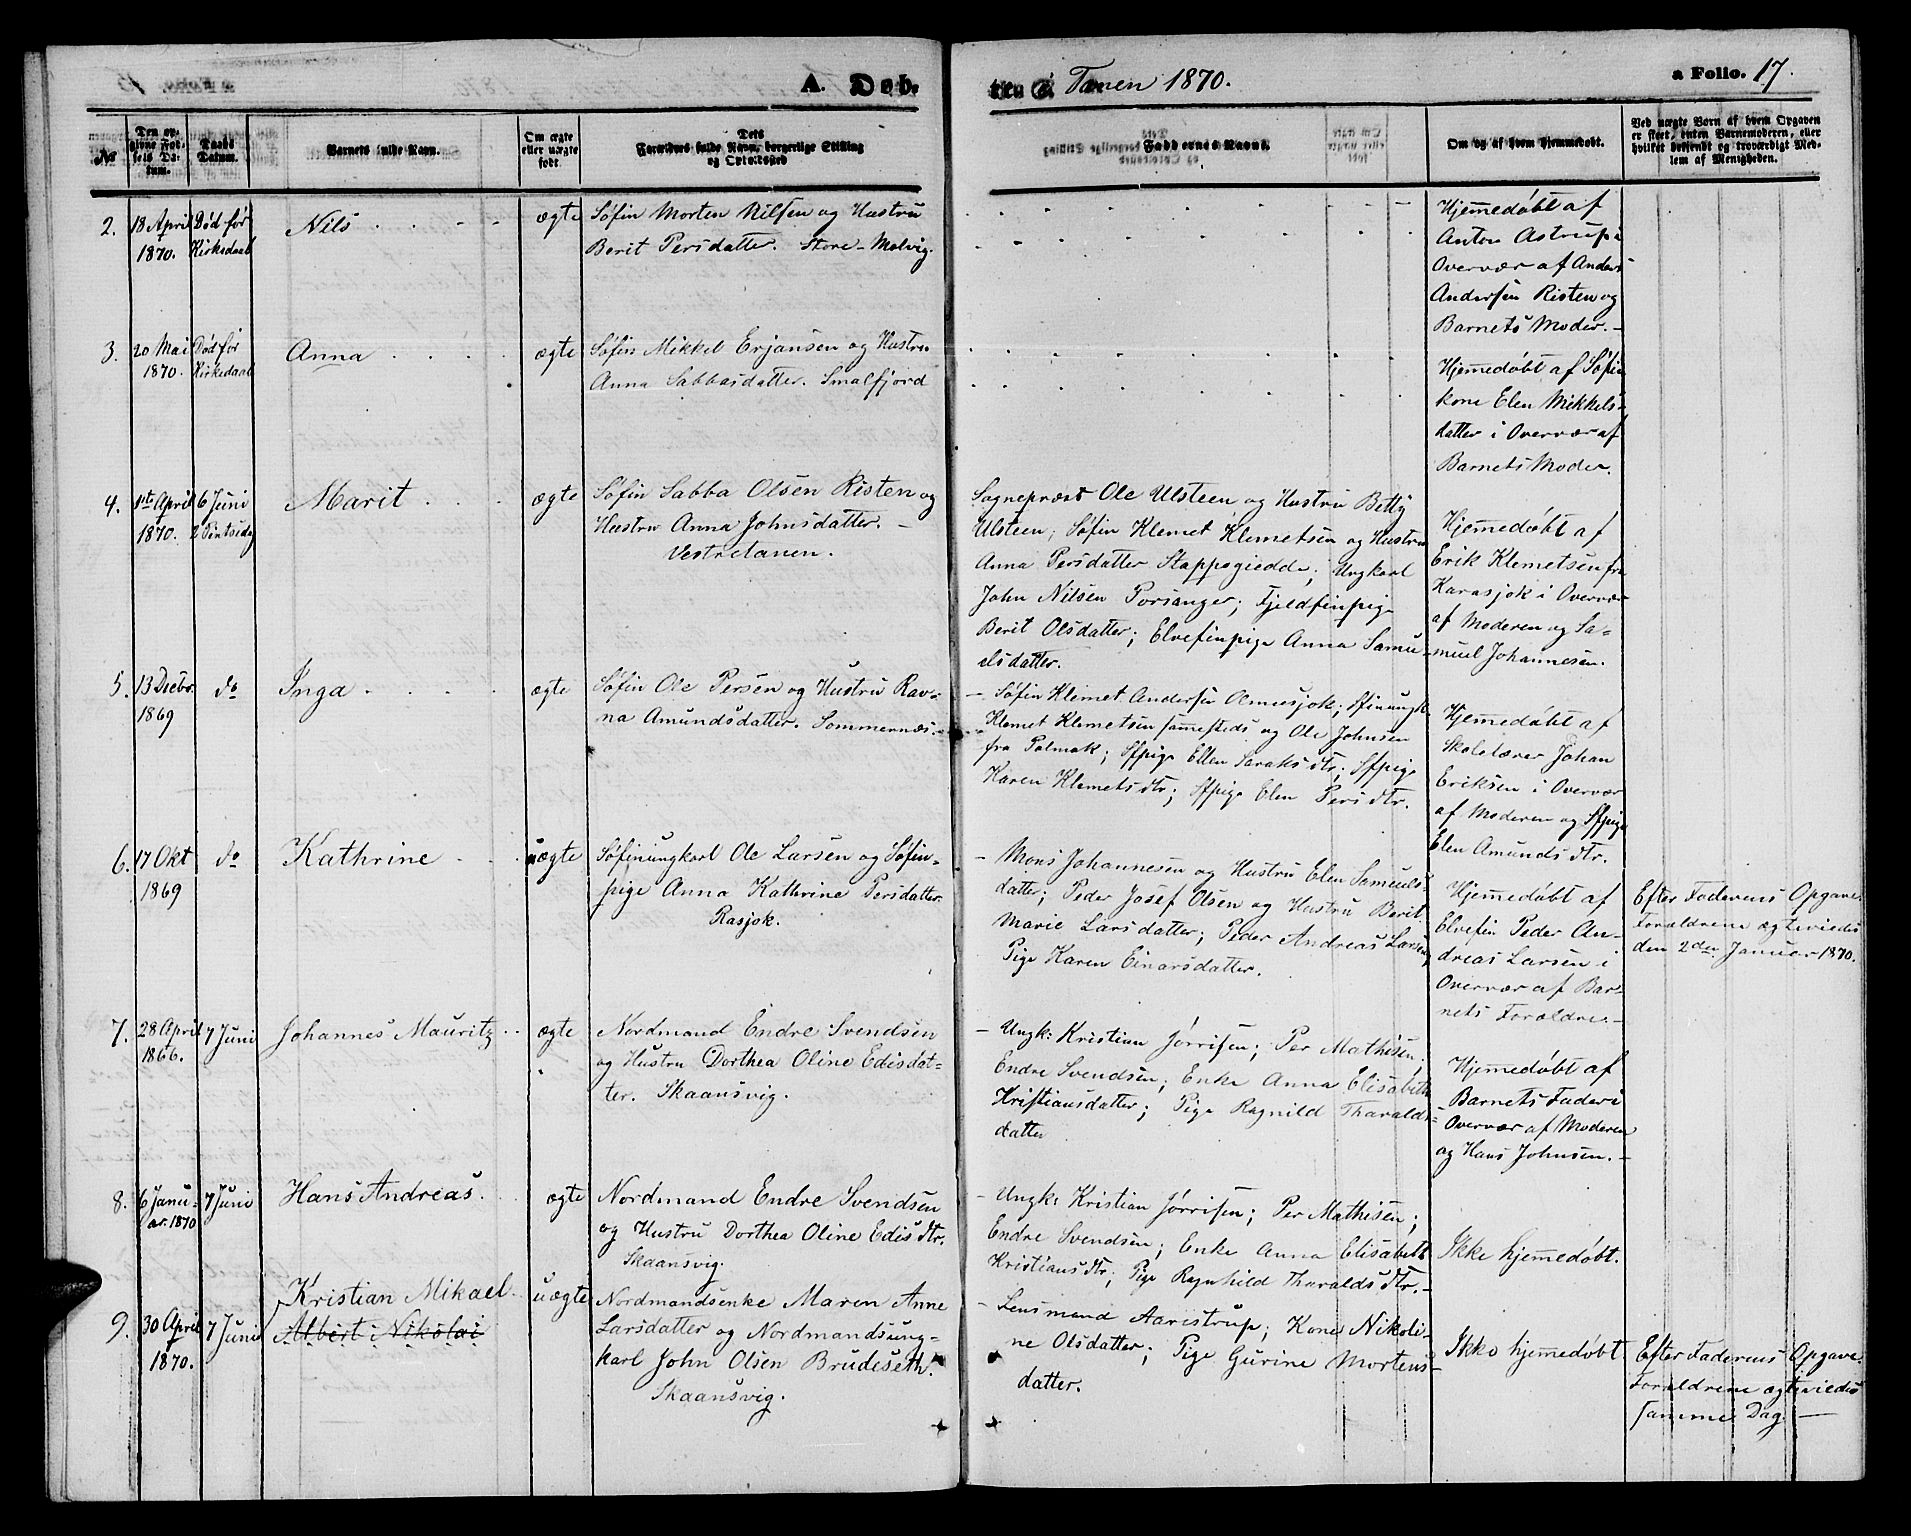 A. Døb. te i Tanen 1870. a Folio. 17.
No Den opgivne Fødsels Datum. Daabs Datum. Barnets fulde Navn. Om ægte eller uægte født. Forældres fulde Navn, borgerlige Stilling og Opholdssted Faddernes Navne. Om og af hvem hjemmedøbt. Ved uægte Børn af hvem Opgaven er skeet, enten Barnemoderen, eller hvilket bekjendt og troværdigt Medlem af Menigheden.
2. 18 April 1870. Død før Kirkedaab
Nils
ægte
Søfin Morten Nilsen og Hustru
Berit Persdatter. Store-Molvig.
Hjemedøbt af
Anton Astrup i
Overvær af Anders
Andersen Risten og
Barnets Moder.-
3. 20 Mai 1870. Død før Kirkedaab
Anna
ægte
Søfin Mikkel Erjansen og Hustru
Anna Sabbasdatter. Smalfjord
Hjemedøbt af Søfin
kone Elen Mikkels-
datter i Overvær af
Barnets Moder.
4. 1ste April 1870. 6 Juni 2 Pintsedag
Marit
ægte
Søfin Sabba Olsen Risten og
Hustru Anna Johnsdatter. -
Vestretanen.
Sognepræst Ole Ulsteen og Hustru Betty
Ulsteen; Søfin Klemet Klemetsen og Hustru
Anna Persdatter Stappogiedde; Ungkarl
John Nilsen Porsanger; Fjeldfinpige
Berit Olsdatter; Elvefinpige Anna Samu-
elsdatter.
Hjemedøbt af
Erik Klemetsen fra
Karasjok i Overvær
af Moderen og Sa-
muel Johannesen.
5. 13 Decbr. 1869 do
Inga
ægte
Søfin Ole Persen og Hustru Rav-
na Amundsdatter. Sommernæs.
- Søfin Klemet Andersen; Sfinungk.
Klemet Klemetsen samesteds og Ole Johnsen
fra Polmak; Sfpige Ellen Saraksdtr; Sfpige
Karen Klemetsdtr; Sfpige Elen Persdtr.
Hjemedøbt af
Skolelærer Johan
Eriksen i Overvær
af Moderen og Sfpige
Elen Amundsdtr.
6. 17 Okt 1869 do
Kathrine
uægte
Søfinungkarl Ole Larsen og Søfin-
pige Anna Kathrine Persdatter
Rasjok.
- Mons Johannesen og Hustru Elen Samuels-
datter; Peder Josef Olsen og Hustru Berit
Marie Larsdatter; Peder Andreas Larsen;
Pige Karen Einarsdatter.
Hjemedøbt af
Elvefin Peder An-
dreas Larsen i
Overvær af Bar-
nets Forældre.-
Efter Faderens Opgave.
Forældrene ægteviedes
den 2den Januar 1870.
7. 28 April 1866. 7 Juni
Johannes Mauritz
ægte
Nordmand Endre Svendsen
og Hustru Dorthea Oline Edisdat-
ter. Skaansvig.
- Ungk: Kristian Jørrisen; Per Mathisen;
Endre Svendsen; Enke Anna Elisabeth
Kristiansdatter; Pige Ragnild Tharalds-
datter
Hjemedøbt af
Barnets Fader i
Overvær af Moderen
og Hans Johnsen.-
8. 6 Janu-ar. 1870 7 Juni
Hans Andreas.
ægte
Nordmand Endre Svendsen
og Hustru Dorthea Oline Edisdtr.
Skaansvig.
- Ungk: Kristian Jørrisen; Per Mathisen;
Endre Svendsen; Enke Anna Elisabeth
Kristiansdtr; Pige Ragnhild Tharaldsdtr.-
Ikke hjemedøbt.
9. 30 April 1870. 7 Juni
Kristian Mikael
Albert Nikolai
uægte
Nordmandsenke Maren Anne
Larsdatter og Nordmandsung-
karl John Olsen Brudeseth.
Skaansvig.
- Lensmand Aaristrup; Kone Nikoli-
ne Olsdatter; Pige Gurine Mortens-
datter.
Ikke hjemedøbt
Efter Faderens Opgave.
Forældrene ægteviedes
samme Dag.-